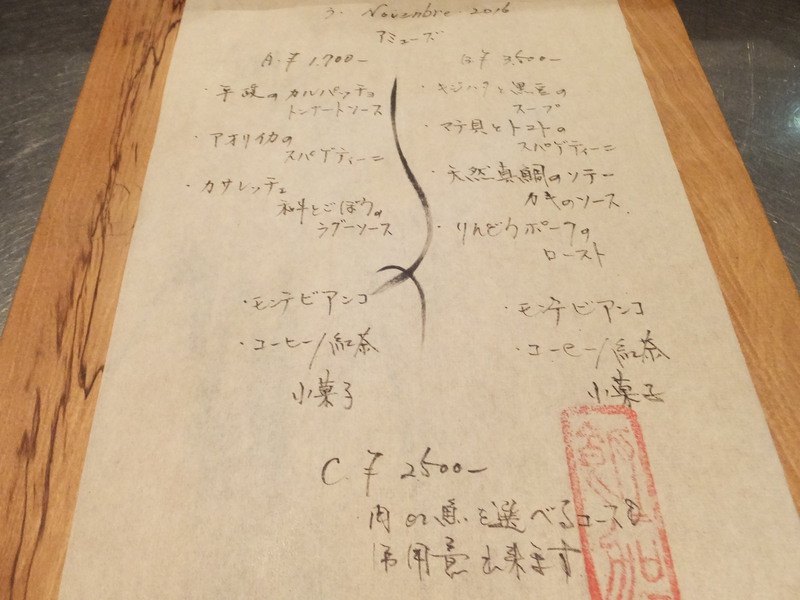 Novembre. 2016
アミューズ
A. ¥1,700-
・平政のカルパッチョ
トンナートソース
・アオリイカの
スパゲティーニ
・カサレッチェ
和牛とごぼうの
ラグーソース
・モンテビアンコ
・コーヒー/紅茶
小菓子
B. ¥3,500-
・キジハタと黒豆の
スープ
・マテ貝とトマトの
スパゲティーニ
・天然真鯛のソテー
カキのソース
・りんどうポークの
ロースト
・モンテビアンコ
・コーヒー/紅茶
小菓子
C. ¥2500-
肉or魚を選べるコースを
用意出来ます